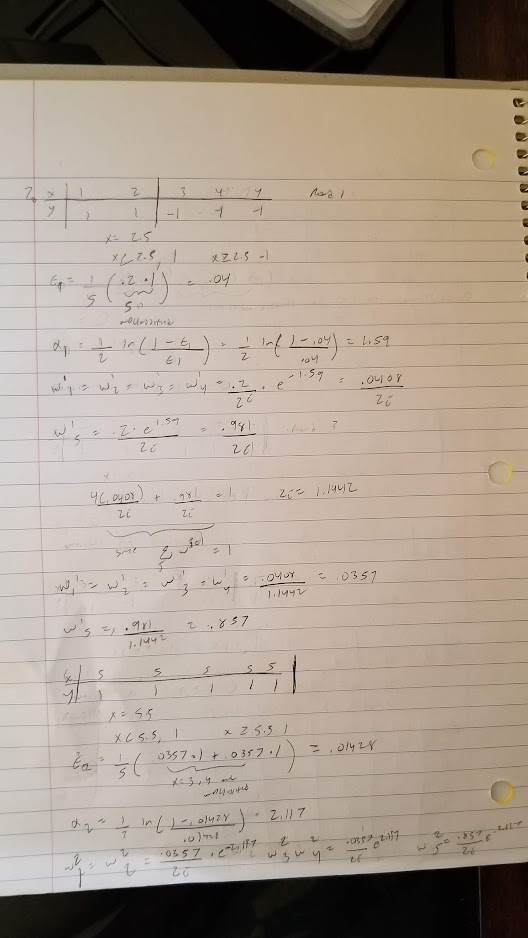 2. x | 1 2 | 3 4 4 Round 1
y | 1 1 | -1 -1 -1
x = 2.5
x < 2.5, 1 x ≥ 2.5 -1
ε1 = 1/5 (.2 · 1) = .04
α1 = 1/2 ln(1 - ε1 / ε1) = 1/2 ln(1 - .04 / .04) = 1.59
w'1 = w'2 = w'3 = w'4 = .2/2i · e^-1.59 = .0408/2i
w'5 = .2 · e^1.59 / 2i = .981/2i
4(.0408)/2i + .981/2i = 1 2i = 1.1442
since Σ w = 1
w'1 = w'2 = w'3 = w'4 = .0408/1.1442 = .0357
w'5 = .981/1.1442 = .857
x | 5 5 5 5 5 |
y | 1 1 1 1 1 |
x = 5.5
x < 5.5, 1 x ≥ 5.5 1
ε2 = 1/5 (.0357 · 1 + .0357 · 1) = .01428
x = 3, 4
α2 = 1/2 ln(1 - .01428 / .01428) = 2.117
w²1 = w²2 = .0357/2i · e^-2.117 w²3 = w²4 = .0357/2i e^2.117 w²5 = .857/2i e^-2.117